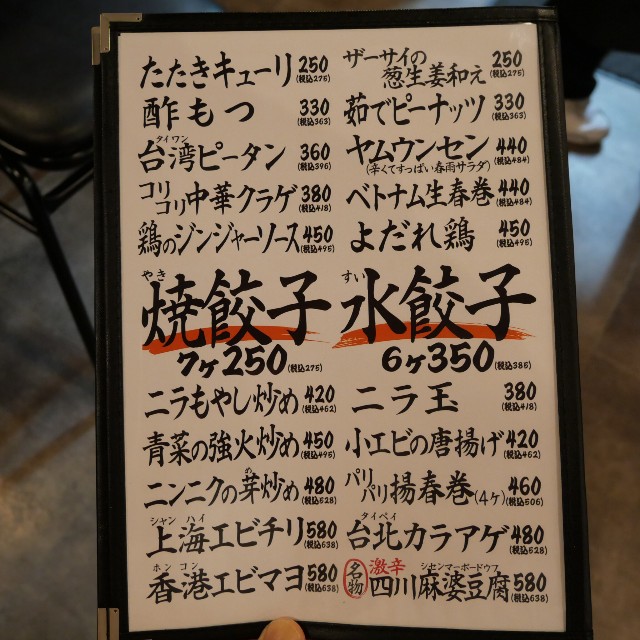 たたきキューリ 250 (税込275)
酢もつ 330 (税込363)
タイワン
台湾ピータン 360 (税込396)
コリコリ中華クラゲ 380 (税込418)
鶏のジンジャーソース 450 (税込495)
ザーサイの
葱生姜和え 250 (税込275)
茹でピーナッツ 330 (税込363)
ヤムウンセン 440 (税込484)
(辛くてすっぱい春雨サラダ)
ベトナム生春巻 440 (税込484)
よだれ鶏 450 (税込495)
やき
焼餃子
7ヶ250 (税込275)
すい
水餃子
6ヶ350 (税込385)
ニラもやし炒め 420 (税込462)
青菜の強火炒め 450 (税込495)
め
ニンニクの芽炒め 480 (税込528)
シャンハイ
上海エビチリ 580 (税込638)
ホンコン
香港エビマヨ 580 (税込638)
ニラ玉 380 (税込418)
小エビの唐揚げ 420 (税込462)
パリパリ揚春巻(4ヶ) 460 (税込506)
タイペイ
台北カラアゲ 480 (税込528)
シセンマーボードウフ
名物 激辛 四川麻婆豆腐 580 (税込638)